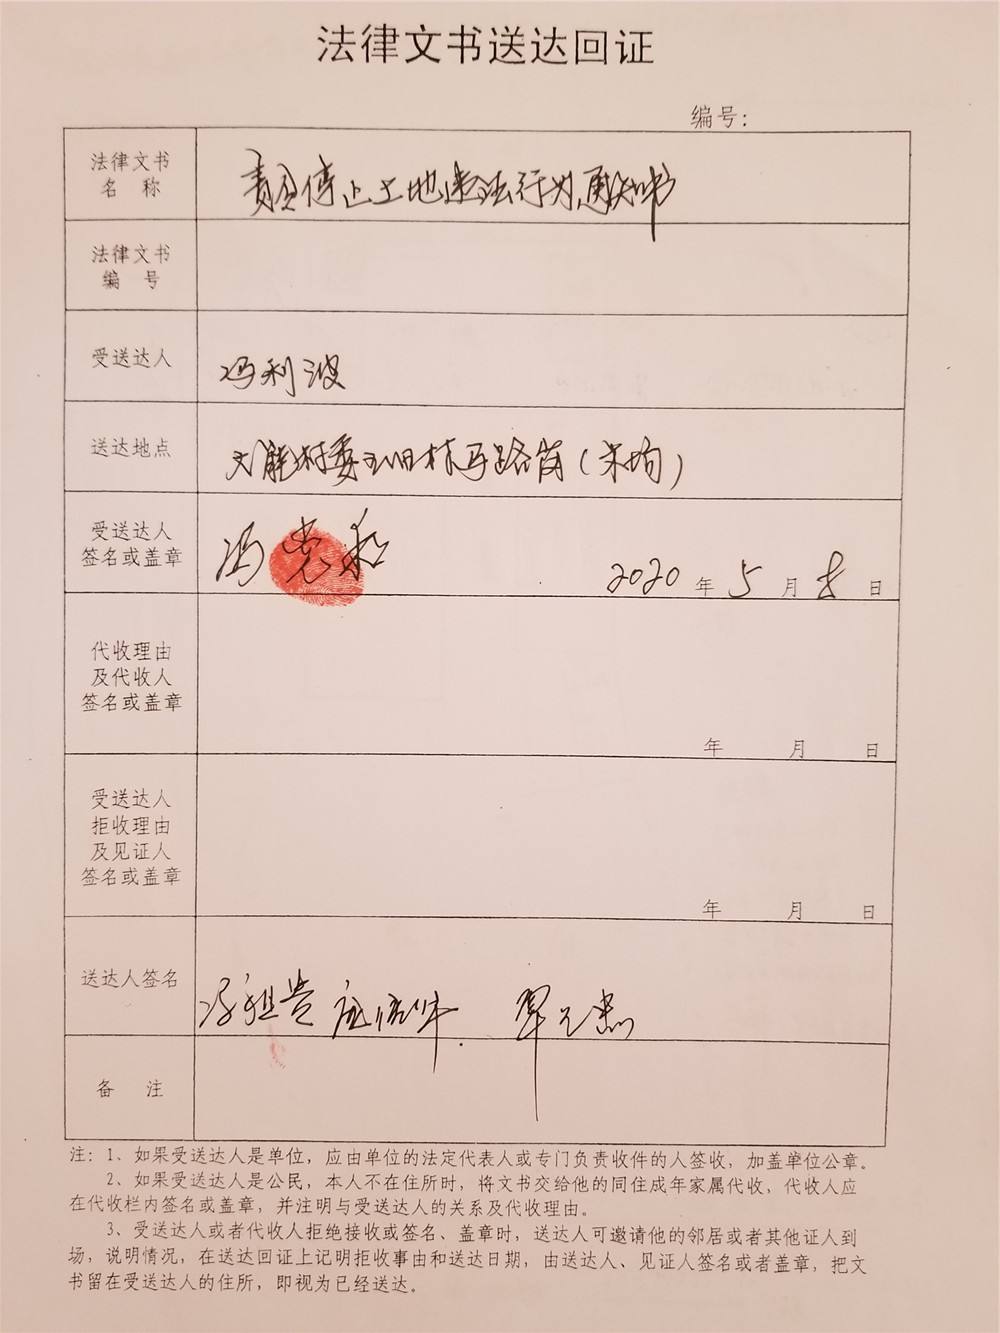 法律文书送达回证
编号：
法律文书
名 称
责令停止土地违法行为通知书
法律文书
编 号
受送达人
冯利波
送达地点
村委
受送达人
签名或盖章
冯党和
2020年5月8日
代收理由
及代收人
签名或盖章
年 月 日
受送达人
拒收理由
及见证人
签名或盖章
年 月 日
送达人签名
备 注
注：1、如果受送达人是单位，应由单位的法定代表人或专门负责收件的人签收，加盖单位公章。
2、如果受送达人是公民，本人不在住所时，将文书交给他的同住成年家属代收，代收人应
在代收栏内签名或盖章，并注明与受送达人的关系及代收理由。
3、受送达人或者代收人拒绝接收或签名、盖章时，送达人可邀请他的邻居或者其他证人到
场，说明情况，在送达回证上记明拒收事由和送达日期，由送达人、见证人签名或者盖章，把文
书留在受送达人的住所，即视为已经送达。